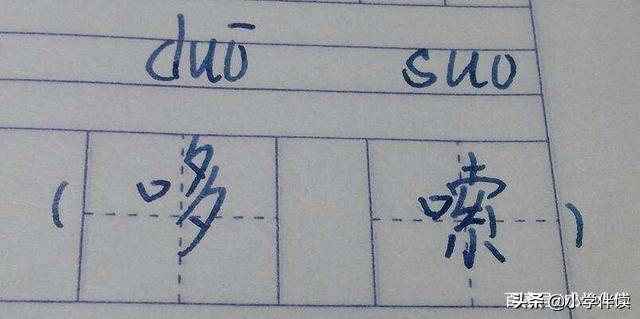 duō suo
(哆 嗦)
头条 @小学伴读